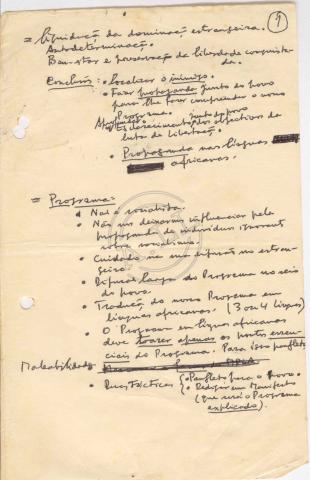 9
= Liquidação da dominação estrangeira.
Autodeterminação.
Bem-estar e preservação da liberdade conquista-
da.
Conclusões: • Localizar o inimigo.
• Fazer propaganda junto do povo
para lhe fazer compreender o nosso
Programa. junto do povo
• Esclarecimento dos objectivos da
luta de libertação.
• Propaganda nas línguas
africanas.
= Programa:
• Não é socialista.
• Não nos deixarmos influenciar pela
propaganda de indivíduos ignorantes
sobre socialismo.
• Cuidado na sua difusão no estran-
geiro.
• Difusão larga do Programa no seio
do povo.
• Tradução do nosso Programa em
línguas africanas. (3 ou 4 línguas)
• O Programa em línguas africanas
deve trazer apenas os pontos essen-
ciais do Programa. Para isso panfleto
Maleabilidade
• Duas tácticas { • Panfleto para o Povo.
• Redigir um Manifesto
(que será o Programa
explicado).